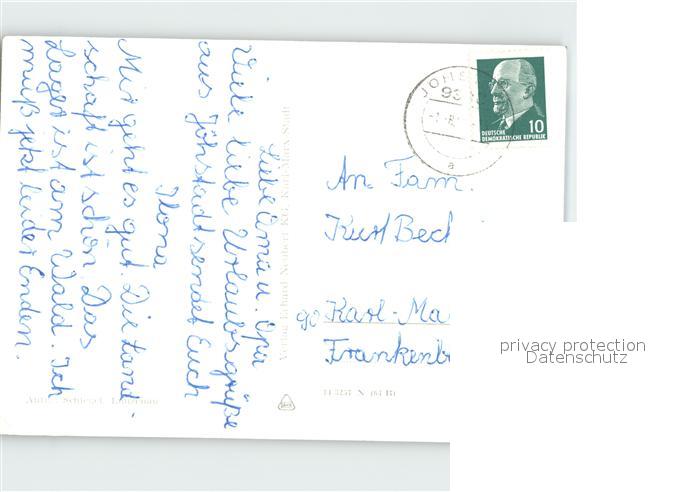 Liebe Oma u. Opa
Viele liebe Urlaubsgrüße
aus Jöhstadt sendet Euch
Ilona
Mir geht es gut. Die Land-
schaft ist schön. Das
Lager ist am Wald. Ich
muß jetzt leider Enden.
Verlag Erhard Neubert KG, Karl-Marx-Stadt
JÖHS
93
DEUTSCHE
DEMOKRATISCHE REPUBLIK
10
a
An Fam.
Kurt Bec
90 Karl-Ma
Frankenb
privacy protection
Datenschutz